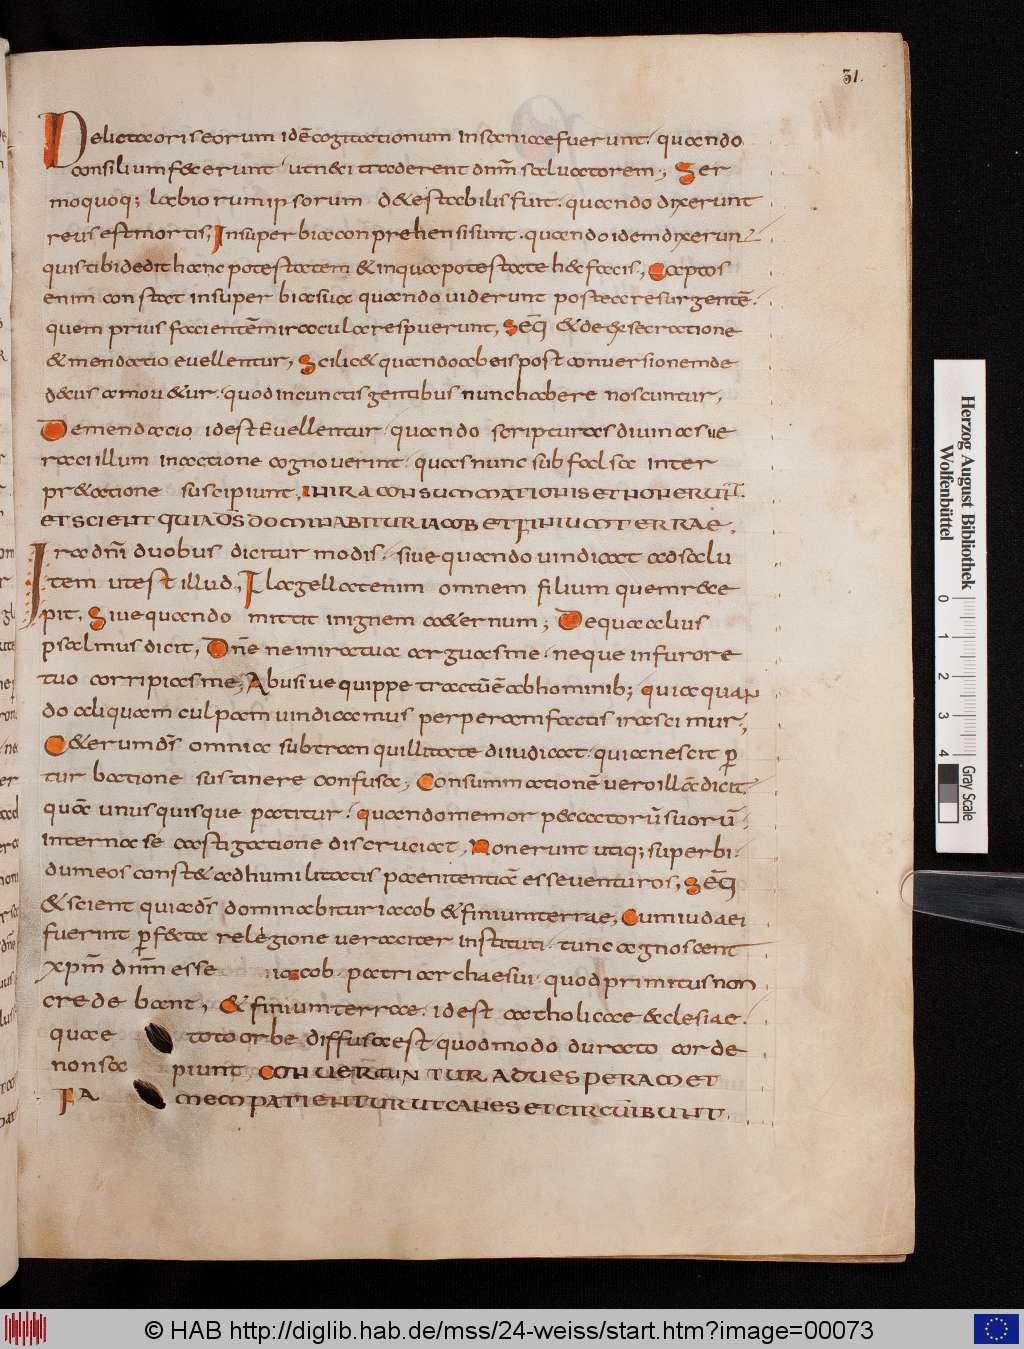 31.
Delicta oris eorum idē cogitationum insaniae fuerunt. quando
consilium fecerunt ut neci traderent dnm̄ saluatorem; Ser
moquoq; labiorum ipsorum detestabilis fuit. quando dixerunt
reus est mortis; In superbia conprehensi sunt. quando idem dixerun
quis tibi dedit hanc potestatem & in qua potestate haec facis; Captos
enim constat in superbia sua quando uiderunt postea resurgentē.
quem prius facientē miracula respuerunt; Seq̄ & de exsecratione
& mendacio euellentur; Scilic& quando ab eis post conuersionem de
decus amou&ur. quod in cunctis gentibus nunc habere noscuntur;
De mendacio id est euellentur. quando scripturas diuinas ue
raci illum in actione cognouerint. quas nunc sub falsa inter
pr&atione suscipiunt; IN IRA CONSUMMATIONIS ET NON ERUNT.
ET SCIENT QUIA DS̄ DOMINABITUR IACOB ET FINIUM TERRAE.
Ira dnī duobus dicitur modis. siue quando uindicat ad salu
tem ut est illud; Flagellat enim omnem filium quem rece
pit. Siue quando mittit in ignem aeternum; De qua alius
psalmus dicit; Dn̄e ne in ira tua arguas me. neque in furore
tuo corripias me; Abusiue quippe tractū est ab hominib; quia quan
do aliquam culpam uindicamus perperam factis irascimur;
C&erum ds̄ omnia sub tranquillitate diiudicat. quia nescit p
turbatione sustinere confusa; Consummationē uero illā dicit
quā unusquisque patitur. quando memor peccatorū suorū
interna se castigatione discruciat; Non erunt utiq; superbi.
dum eos constet ad humilitatis paenitentiā esse uenturos; Seq̄
& scient quia ds̄ dominabitur iacob & finium terrae; Cum iudaei
fuerint pfecta relegione ueraciter instituti. tunc agnoscent
xpm̄ dnm̄ esse iacob. patriarchae sui. quod primitus non
credebant; & finium terrae. id est catholicae ecclesiae.
quae toto orbe diffusa est quod modo durato corde
non sa piunt; CONUERTUNTUR AD UESPERAM ET
FA MEM PATIENTUR UT CANES ET CIRCUIBUNT.
Herzog August Bibliothek
Wolfenbüttel
0 1 2 3 4
Gray Scale
© HAB http://diglib.hab.de/mss/24-weiss/start.htm?image=00073